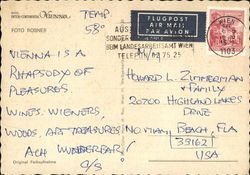 INTER-CONTINENTAL Vienna
TEMP
58°
FOTO ROSNER
FLUGPOST
AIR MAIL
PAR AVION
AUS
SONDER
BEIM LANDESARBEITSAMT WIEN
TELEFON 62 75 25
1103
VIENNA IS A
RHAPSODY OF
PLEASURES.
WINES, WIENERS,
WOODS, ART TREASURES
ACH WUNDERBAR!
HOWARD L. ZIMMERMAN
+ FAMILY
20700 HIGHLAND LAKES
DRIVE
NO. MIAMI BEACH, FLA
33162
USA
Original Farbaufnahme